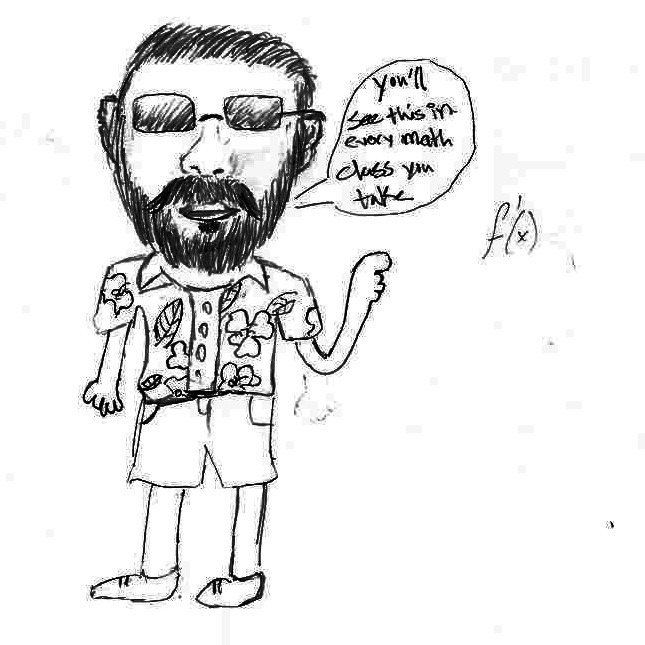 you'll
see this in
every math
class you
take
f'(x)